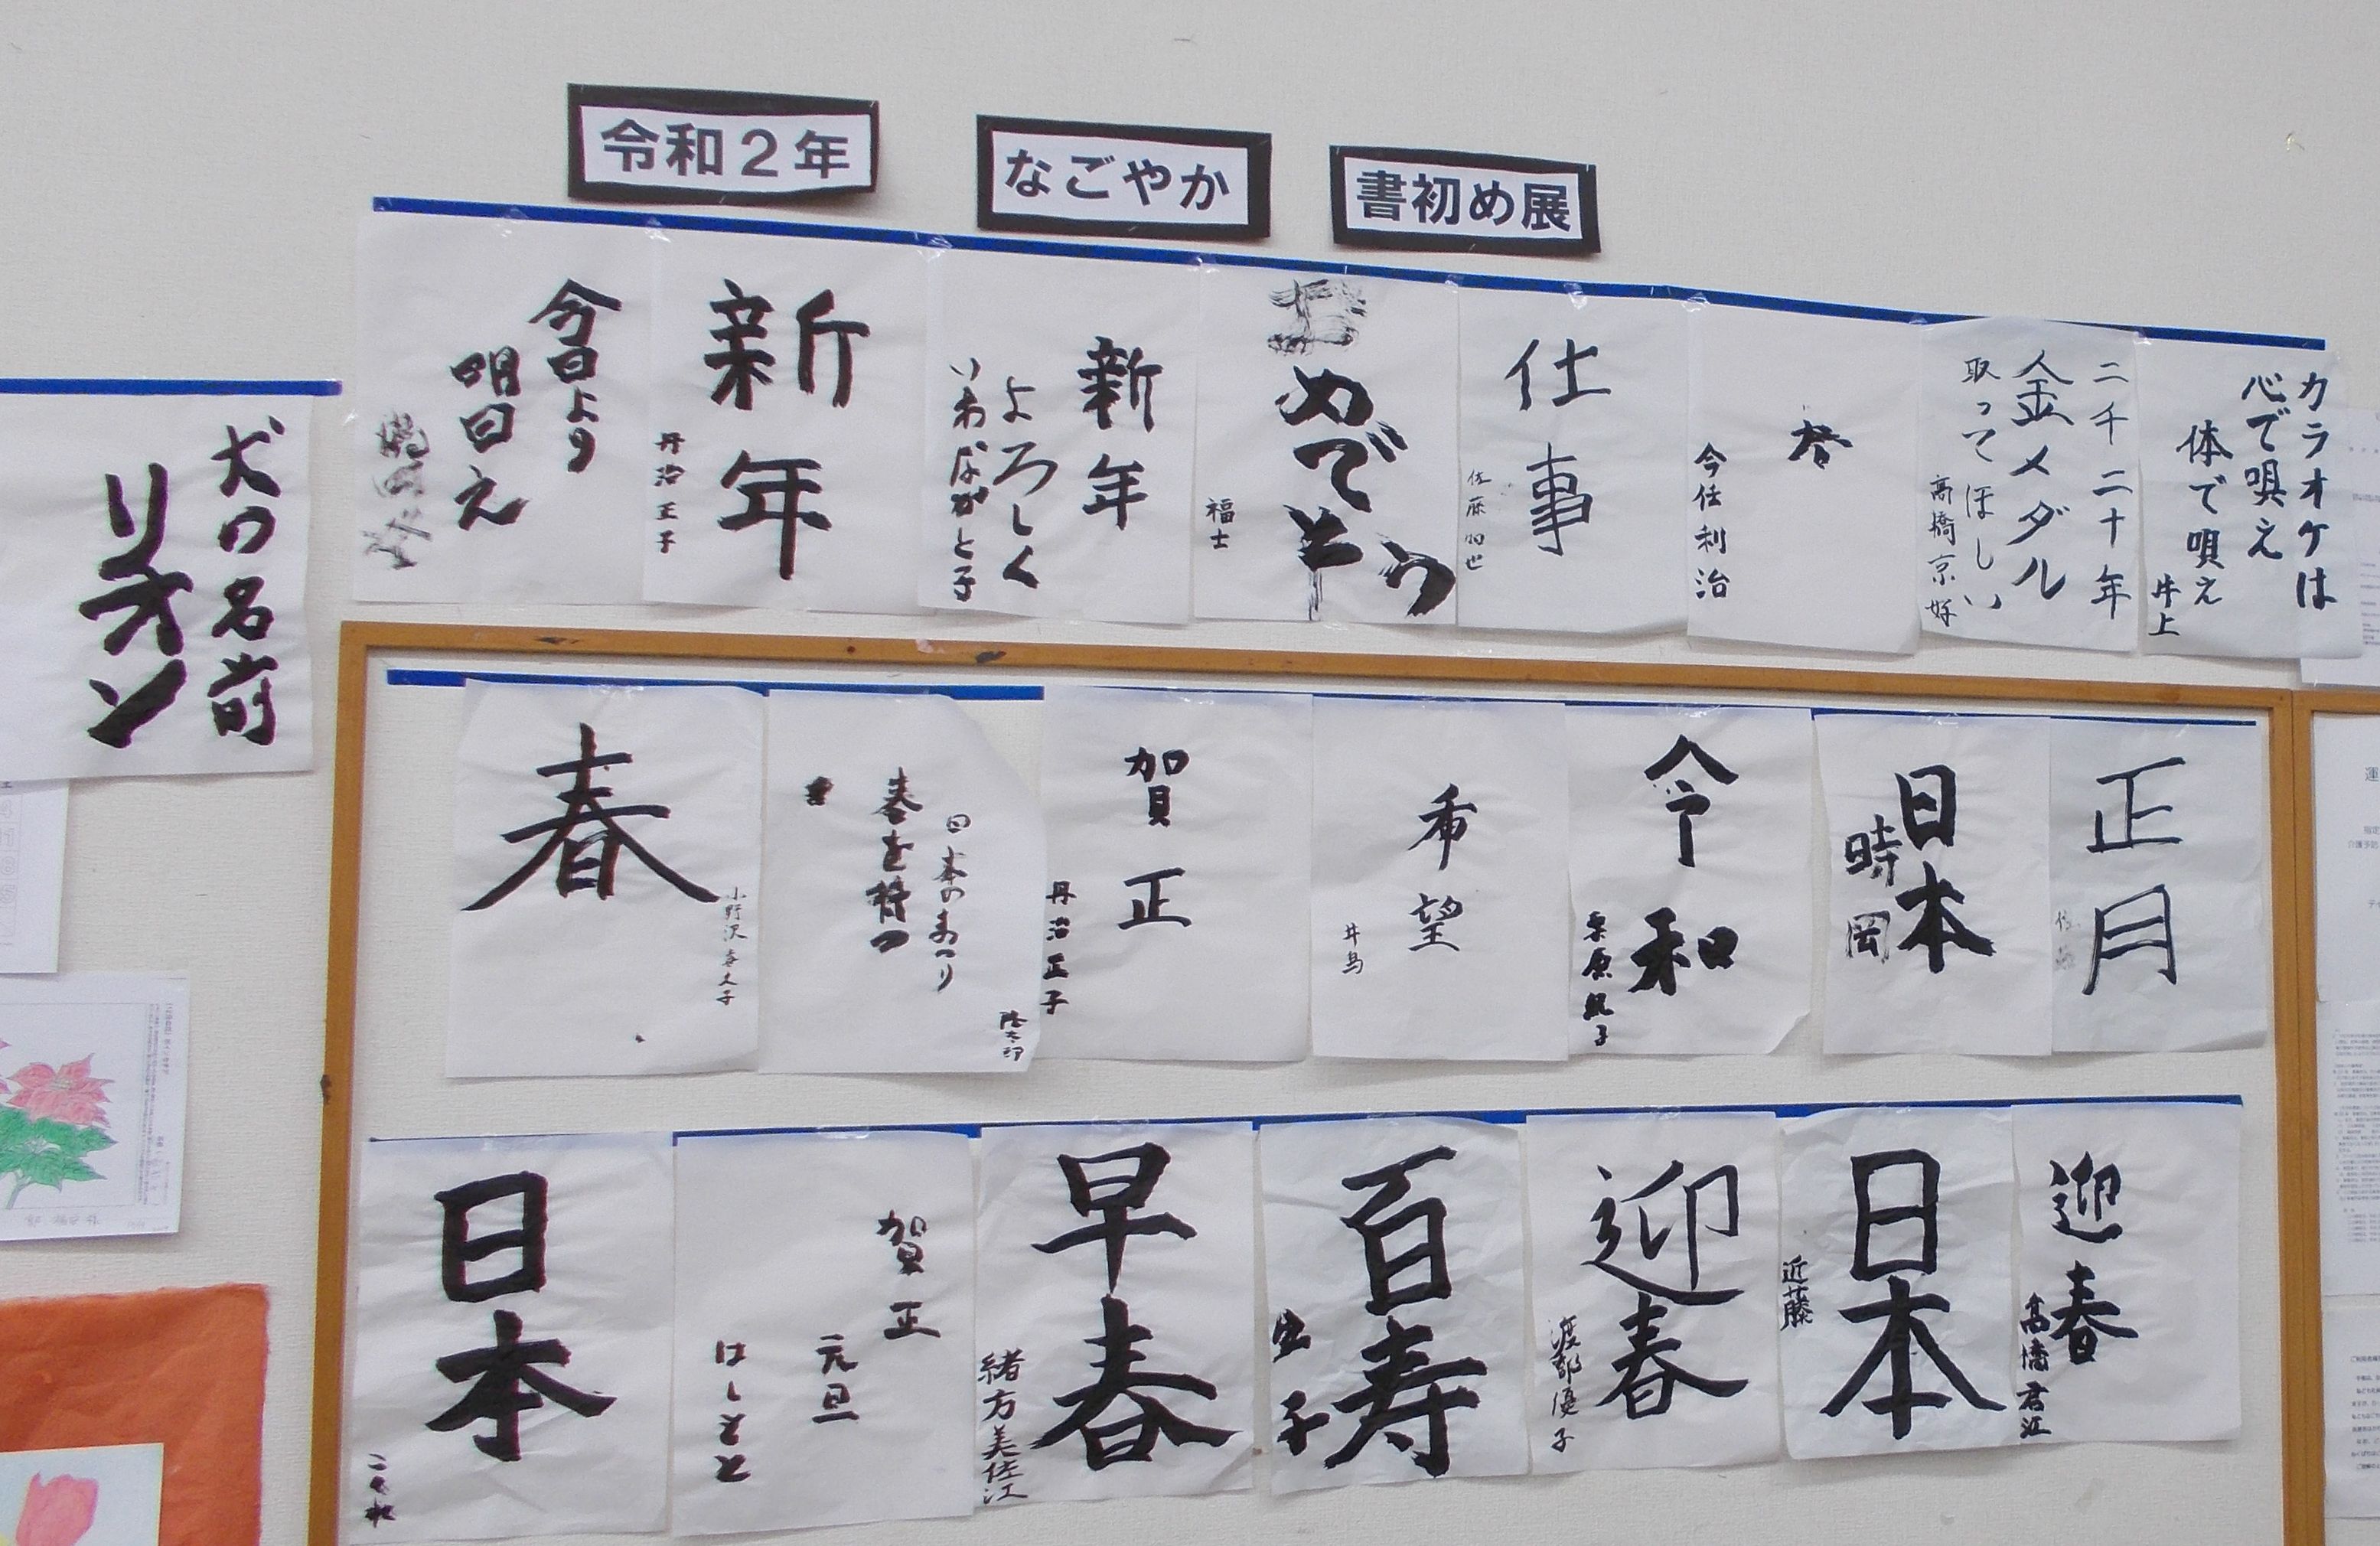 令和2年
なごやか
書初め展
カラオケは
心で唄え
体で唄え
井上
二千二十年
金メダル
取ってほしい
高橋京好
春
今任利治
仕事
佐藤
おめでとう
福士
新年
よろしく
新年
丹治正子
今日より
明日え
犬の名前
リオン
正月
佐藤
日本
時岡
令和
栗原
希望
賀正
丹治正子
日本のまつり
春を待つ
春
小野沢喜久子
迎春
高橋君江
日本
近藤
迎春
渡部優子
百寿
早春
緒方美佐江
賀正
元旦
はしもと
日本